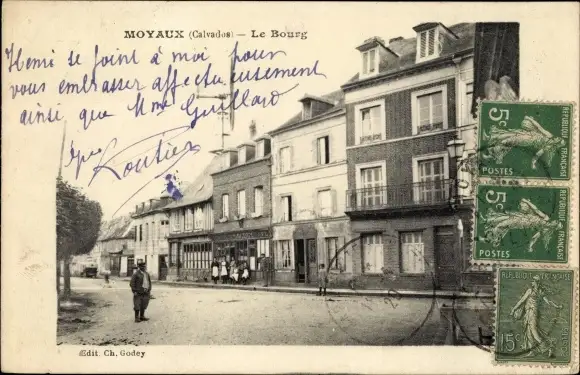 MOYAUX (Calvados) — Le Bourg
Henri se joint à moi pour
vous embrasser affectueusement
ainsi que Mme Guillard
Routier
Édit. Ch. Godey
5c
POSTES
RÉPUBLIQUE FRANÇAISE
5c
POSTES
RÉPUBLIQUE FRANÇAISE
REPUBLIQUE FRANÇAISE
15c
POSTES